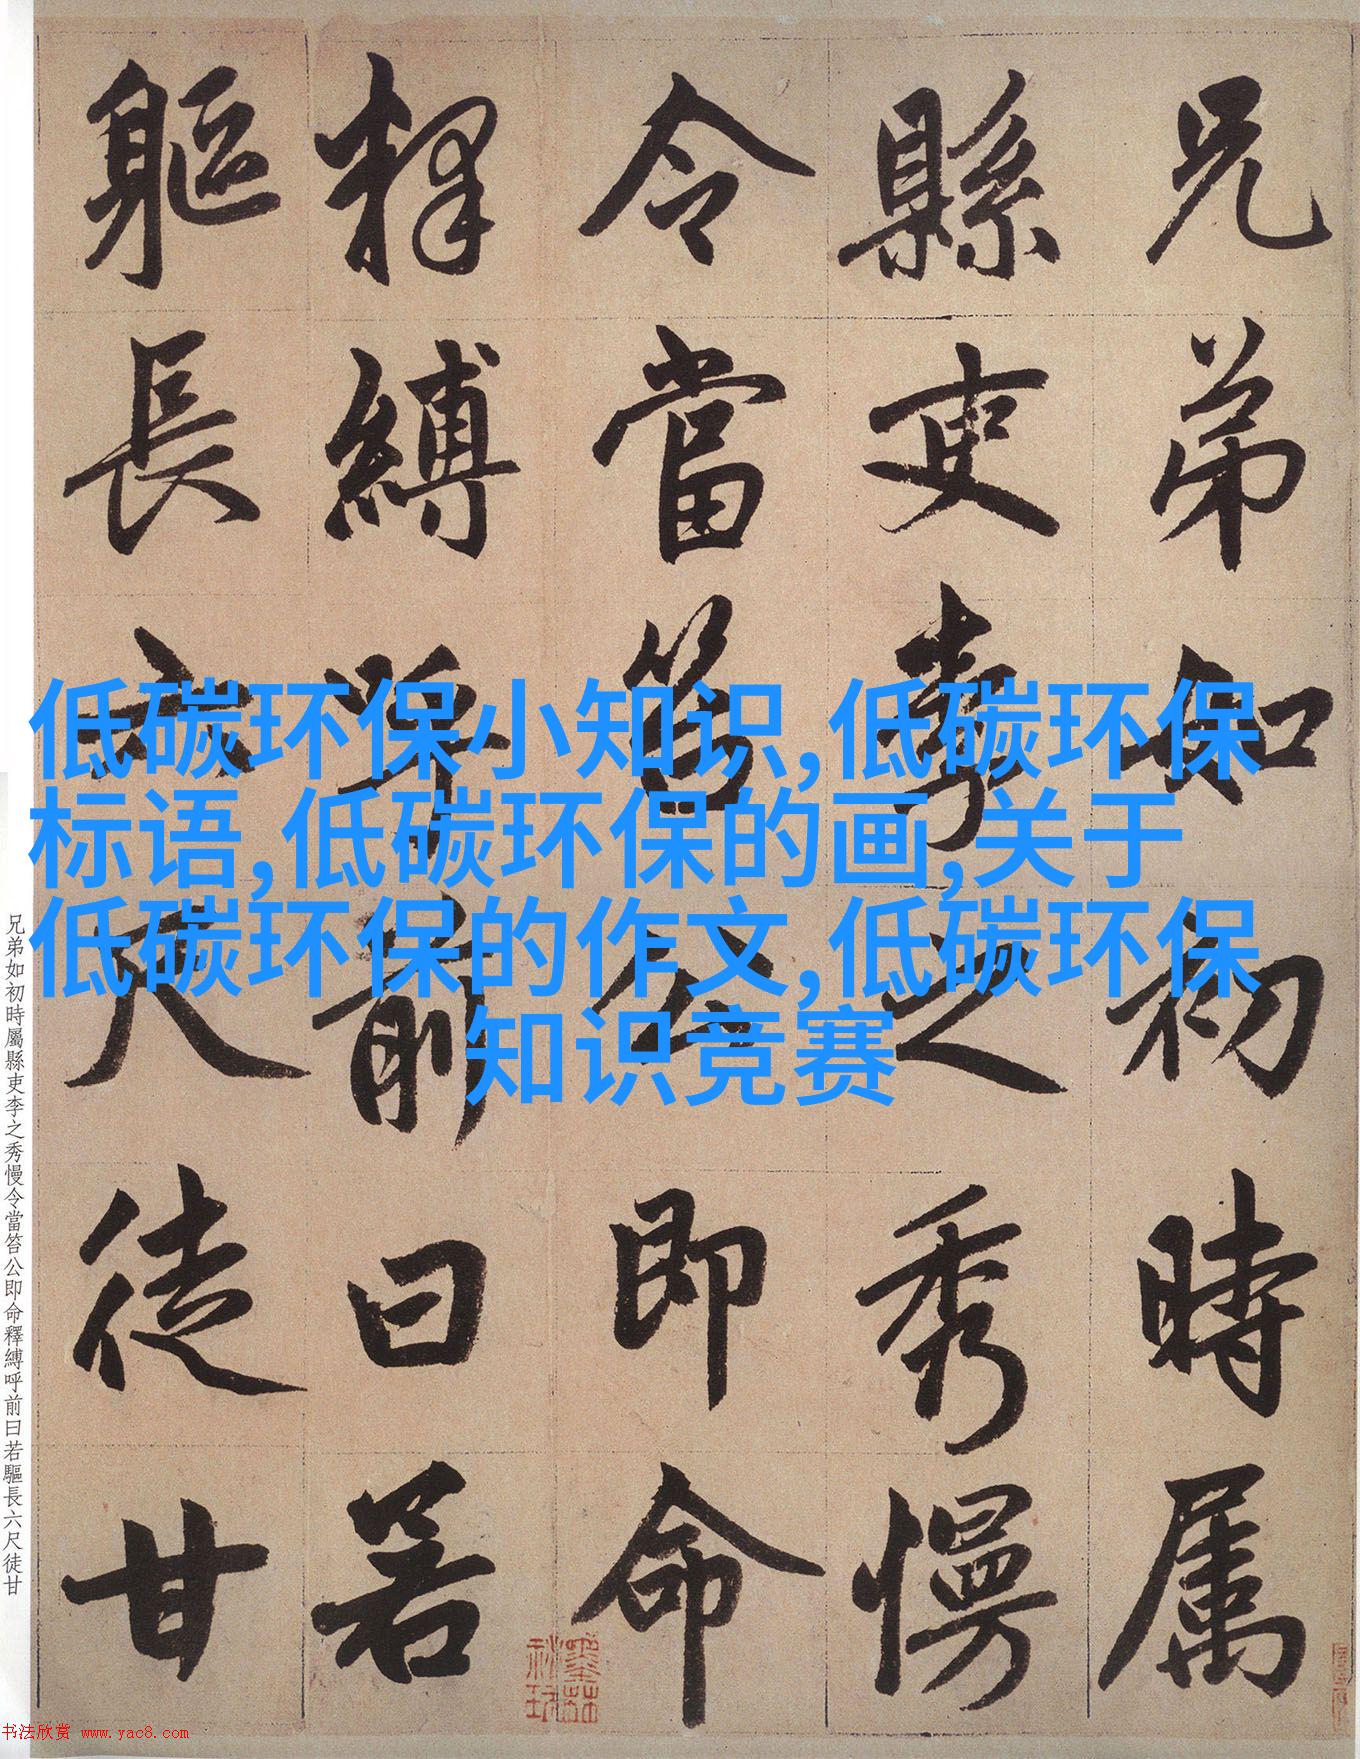 兄弟如初時属
縣吏李之秀慢
令當笞公即命
釋縛呼前曰若
軀長六尺徒甘
低碳环保小知识,低碳环保
标语,低碳环保的画,关于
低碳环保的作文,低碳环保
知识竞赛
兄弟如初時屬縣吏李之秀慢令當笞公即命釋縛呼前曰若驅長六尺徒甘
书法欣赏 www.yac8.com